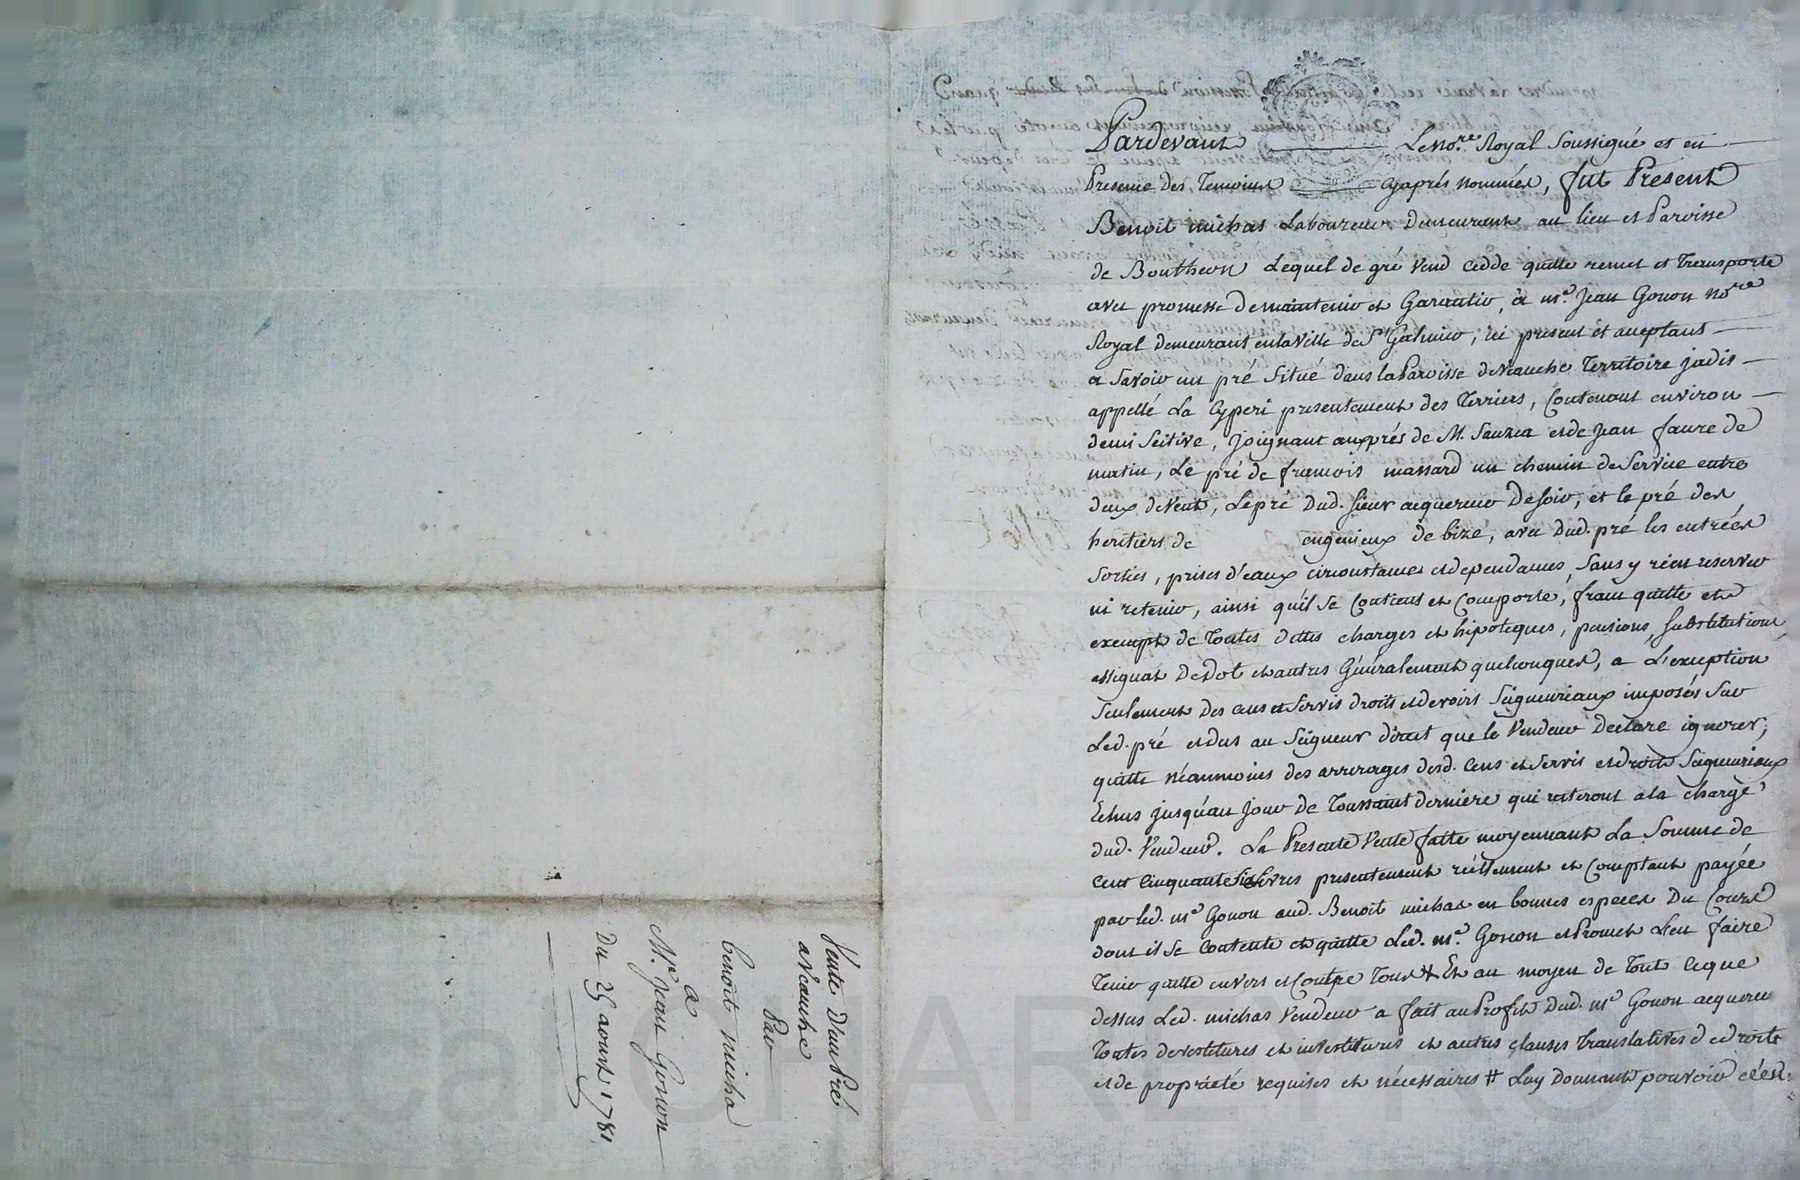 Pardevant Le no.re Royal Soussigné et en
Presence des Temoins cyaprés nommés, fut Present
Benoit michas Laboureur demeurant au lieu et Paroisse
de Boutheon Lequel de gré vend cedde quitte remet et transporte
avec promesse de maintenir et Garantir, à m.e Jean Gonon no.re
Royal demeurant en la Ville de S.t Galmier, ici present et acceptant
a Savoir un pré Situé dans la Paroisse de Veauche Territoire jadis
appellé La Cyperi presentement des Terriers, Contenant environ
demi Seitive, Joignant aux prés de M. Sauzea et de Jean faure de
matin, Le pré de francois massard un chemin de Service entre
deux de Vent, Le pré Dud. Sieur acquereur De Soir, et le pré des
heritiers de engenieux de bize, avec Dud. pré les entrées
Sorties, prises d'eaux circonstances et dependances, Sans y rien reserver
ni retenir, ainsi qu'il Se Contient et Comporte, franc quitte et
exempt de toutes dettes charges et hipoteques, pensions, Substitutions
assignat De Dot et autres Généralement quelconques, a L'exception
Seulement Des cens et Servis droits et devoirs Seigneuriaux imposés Sur
Led. pré et dus au Seigneur direct que le Vendeur Declare ignorer,
quitte néanmoins des arrerages desd. Cens et Servis et droits Seigneuriaux
Echus jusqu'au jour de Toussaint derniere qui resteront a la charge
dud. Vendeur. La Presente Vente faitte moyennant La Somme de
Cent Cinquante Livres presentement réellement et Comptant payée
par led. m.e Gonon aud. Benoit michas en bonnes especes Du Cours
dont il Se Contente et quitte Led. m.e Gonon et Promet L'en faire
Tenir quitte envers et Contre Tous # Et au moyen de Tout Ceque
dessus Led. michas Vendeur a fait au Profit Dud. m.e Gonon acquereur
Toutes devestitures et investitures et autres clauses Translatives de droits
et de proprieté requises et nécessaires # Luy Donnant pouvoir
Vente D'un Pré
a Veauche
Par
benoit micha
a
M.e Jean Gonon
Du 25 aoust 1781
CHAREYRON